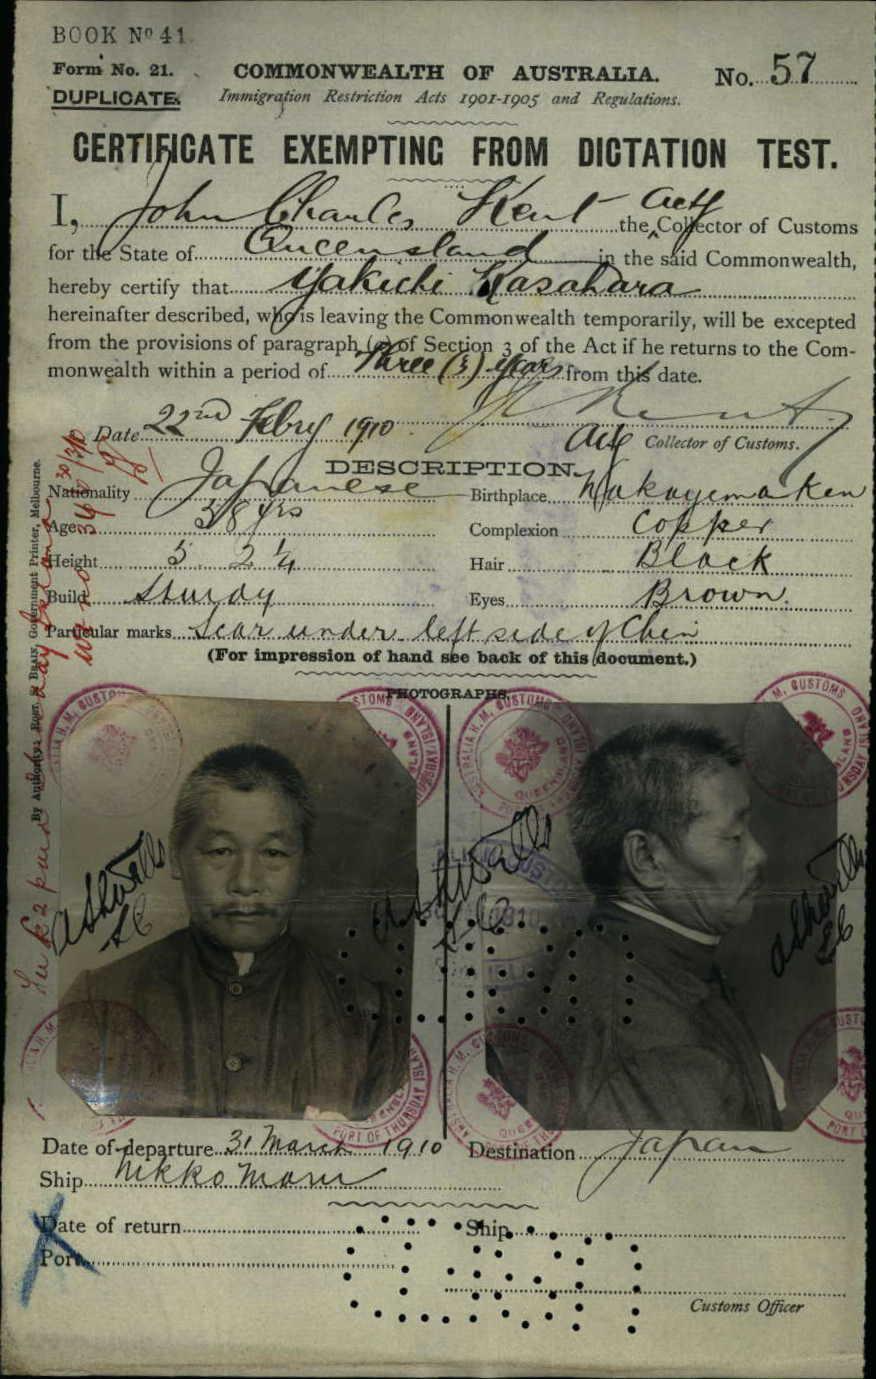 BOOK Nº 41.
Form No. 21. COMMONWEALTH OF AUSTRALIA. No. 57
DUPLICATE. Immigration Restriction Acts 1901-1905 and Regulations.
CERTIFICATE EXEMPTING FROM DICTATION TEST.
I, John Charles Kent the Actg Collector of Customs
for the State of Queensland in the said Commonwealth,
hereby certify that Yakichi Kasahara
hereinafter described, who is leaving the Commonwealth temporarily, will be excepted
from the provisions of paragraph (a) of Section 3 of the Act if he returns to the Com-
monwealth within a period of Three (3) years from this date.
Date 22nd Febry 1910
Actg Collector of Customs.
DESCRIPTION.
Nationality Japanese Birthplace Wakayama Ken
Age 38 yrs Complexion Copper
Height 5 2 1/4 Hair Black
Build Sturdy Eyes Brown.
Particular marks Scar under left side of Chin
(For impression of hand see back of this document.)
PHOTOGRAPHS.
Date of departure 31 March 1910 Destination Japan
Ship Nikko Maru
Date of return Ship
Port
Customs Officer
Government Printer, Melbourne.
PORT OF THURSDAY ISLAND